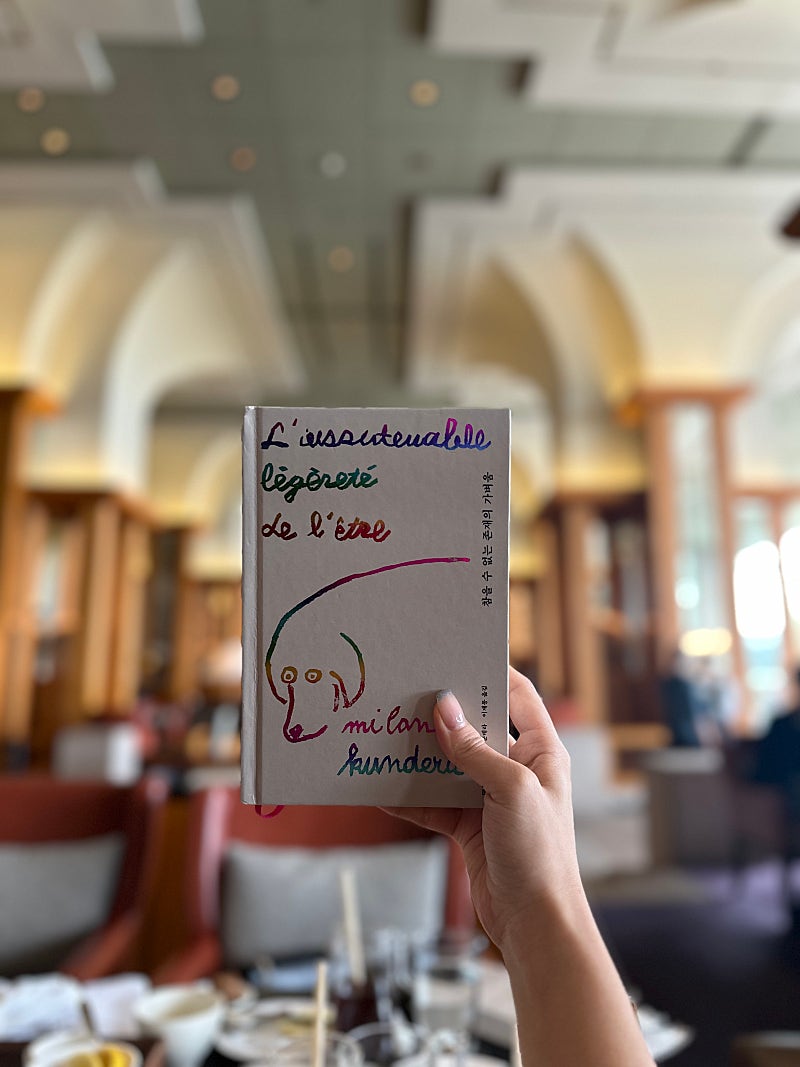 L'insoutenable
légèreté
de l'être
milan
kundera
참을 수 없는 존재의 가벼움
이재룡 옮김